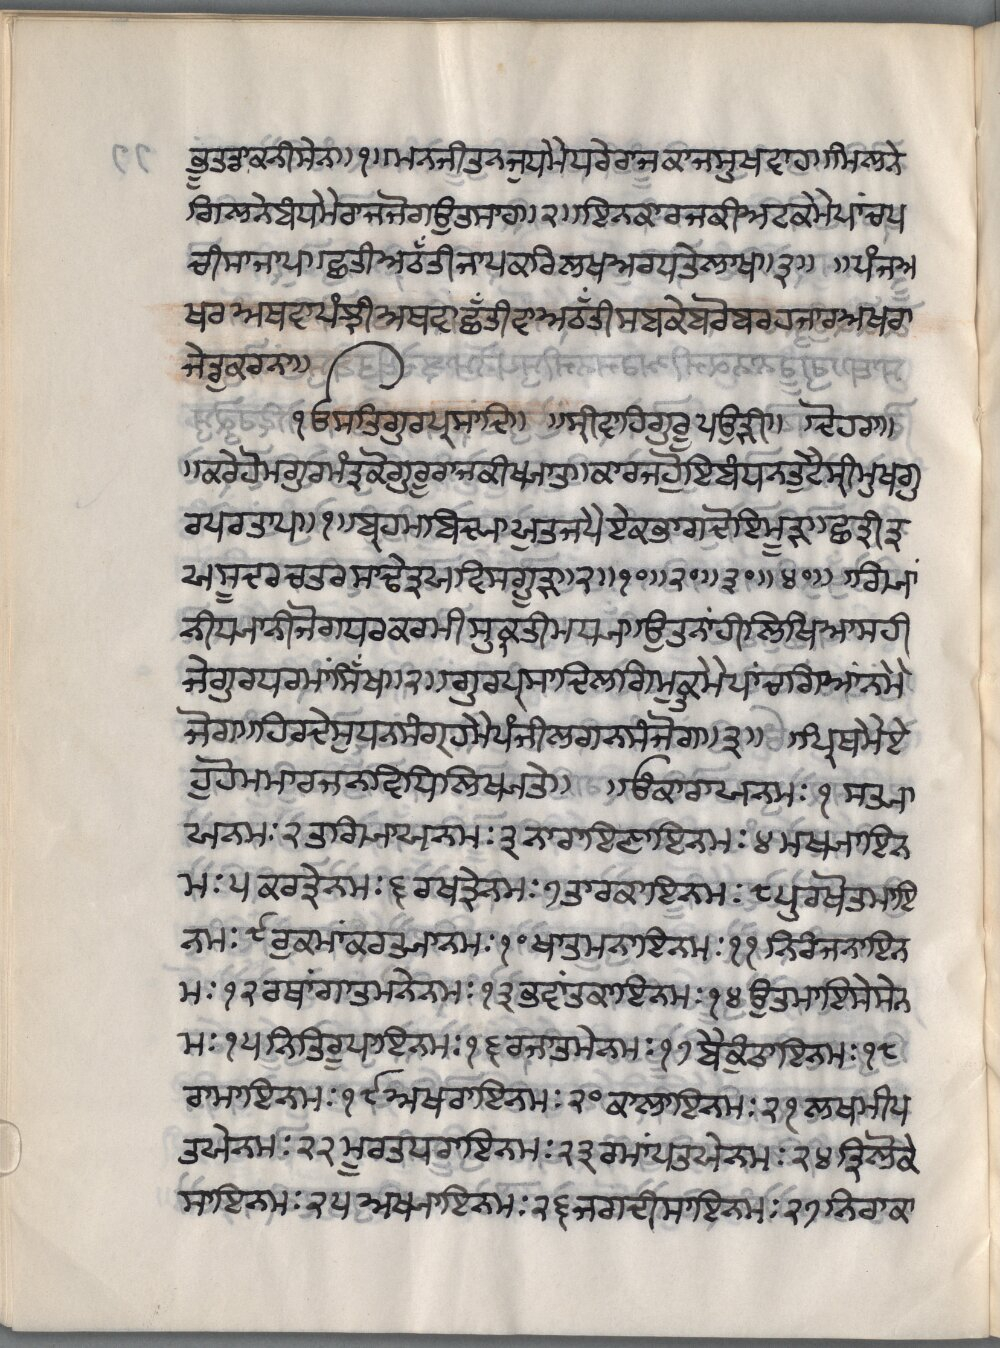 ਭੂਤਡਾਕਨੀਸੇਨਾ॥੧॥ਮਨਜੀਤੁਨਜੁਧਮੈਪਰੇਰਾਜਕਾਜਸੁਖਵਾਹ॥ਮਿਲਨੇ
ਗਿਲਨੇਬੰਧਮੈਰਾਜਜੋਗਉਤਸਾਹ॥੨॥ਇਨਕਾਰਜਕੀਅਟਕਮੈਪਾਂਚਪ
ਚੀਸਾਜਾਪਾ॥ਛਤੀਅਠੱਤੀਜਾਪਕਰਿਲਖਅਰਧਤੇਲਾਖਾ॥੩॥ ॥ਪੰਜਅ
ਖਰਅਥਵਾਪੰਝੀਅਥਵਾਛੱਤੀਵਾਅਠੱਤੀਸਬਕੇਬਰੋਬਰਹਜਾਰਅਖਰਾ
ਜੇਤੁਕਰਨਾ॥
੧ਓਸਤਿਗੁਰਪ੍ਰਸਾਦਿ॥ ॥ਸ੍ਰੀਵਾਹਿਗੁਰੂਪਉੜੀ॥ ਦੋਹਰਾ॥
॥ਕਰੇਹੋਮਗੁਰਮੰਤ੍ਰਕੋਗੁਰੂਰਾਜਕੀਖ੍ਯਾਤ॥ਕਾਰਜਹੋਇਬੰਧਨਤੁਟੈਸ੍ਰੀਮੁਖਗੁ
ਰਪਰਤਾਪਾ॥੧॥ਬ੍ਰਹਮਾਬਿਦ੍ਯਾਘ੍ਰਿਤਜਪੈਏਕਭਾਗਦੋਇਮੂੜਾ॥ਛਤ੍ਰੀਤ੍ਰ
ਘਸੂਦਰਚਤਰਸਾਢੇਤ੍ਰਘਦਿਸਗੂੜਾ॥੨॥੧੦॥੨੦॥੩੦॥੪੦॥ ਗਿਆਂ
ਨੀਧ੍ਯਾਨੀਜੋਗਪਰਕਰਮੀਸੁਕ੍ਰਤੀਮਧ੍ਯਾ॥ਉਤੁਨਾਂਹੀਲਿਖਿਆਸਹੀ
ਜੇਗੁਰਪਰਮਾਂਸਿੱਖਾ॥੨॥ਗੁਰਪ੍ਰਸਾਦਿਲਗਿਮੁਕਤੁਮੇਪਾਂਚਗਿਆਂਨਮੇ
ਜੋਗਾ॥ਹਿਰਦੇਸੁਧਨਸੰਗ੍ਰਹਮੈਪੰਜੀਲਗਨਸੰਜੋਗਾ॥੩॥ ॥ਪ੍ਰਥਮੈਏ
ਹੁਹੋਮਮਾਰਜਨਾਵਿਧਿਲਿਖ੍ਯਤੇ॥ ॥ਓਕਾਰਾਘਨਮ:੧ਸਤ੍ਯਾ
ਘਨਮ:੨ਤਾਗਿਆਘਨਮ:੩ਨਾਰਾਇਣਾਇਨਮ:੪ਮਖ੍ਯਾਇਨ
ਮ:੫ਕਰਤ੍ਰੇਨਮ:੬ਰਖਤ੍ਰੇਨਮ:੭ਤਾਰਕਾਇਨਮ:੮ਪੁਰਖੋਤਮਾਇ
ਨਮ:੯ਰੁਕਮਾਂਕਰਤ੍ਯਾਨਮ:੧੦ਖਾਤੁਮਨਾਇਨਮ:੧੧ਨਿਰੰਜਨਾਇਨ
ਮ:੧੨ਰਖਾਂਗਾਤਮਨੇਨਮ:੧੩ਭਵਾਂਤਕਾਇਨਮ:੧੪ਉਤਮਾਇਸੇਸੇਨ
ਮ:੧੫ਨਿਤਿਰੂਪਾਇਨਮ:੧੬ਰਜਾਤਮੇਨਮ:੧੭ਬੈਕੁੰਠਾਇਨਮ:੧੮
ਰਾਮਾਇਨਮ:੧੯ਅਖਰਾਇਨਮ:੨੦ਕਾਲਾਇਨਮ:੨੧ਲਖਮੀਪ
ਤਘੇਨਮ:੨੨ਮੂਰਤਧਰਾਇਨਮ:੨੩ਰਮਾਂਪਤਘੇਨਮ:੨੪ਤ੍ਰਿਲੋਕੇ
ਸਾਇਨਮ:੨੫ਅਖ੍ਯਾਇਨਮ:੨੬ਜਗਦੀਸਾਇਨਮ:੨੭ਨਿਰਾਕਾ